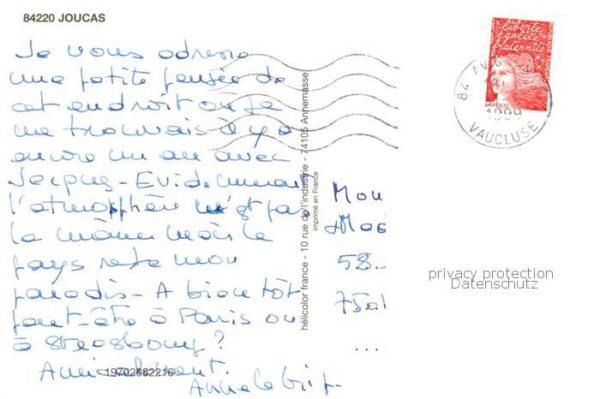 84220 JOUCAS
Je vous adresse
une petite pensée de
cet endroit où je
me trouvais il y a
encore un an avec
Jacques - Evidemment
l'atmosphère n'est pas
la même mais le
pays reste mon
paradis - A bientôt
peut-être à Paris ou
à Strasbourg ?
Amicalement.
19702882216
hélicolor france - 10 rue de l'industrie - 74105 Annemasse
imprimé en France
liberté
égalité
fraternité
LA POSTE
84 AV
1999
VAUCLUSE
Mon
58
privacy protection
Datenschutz